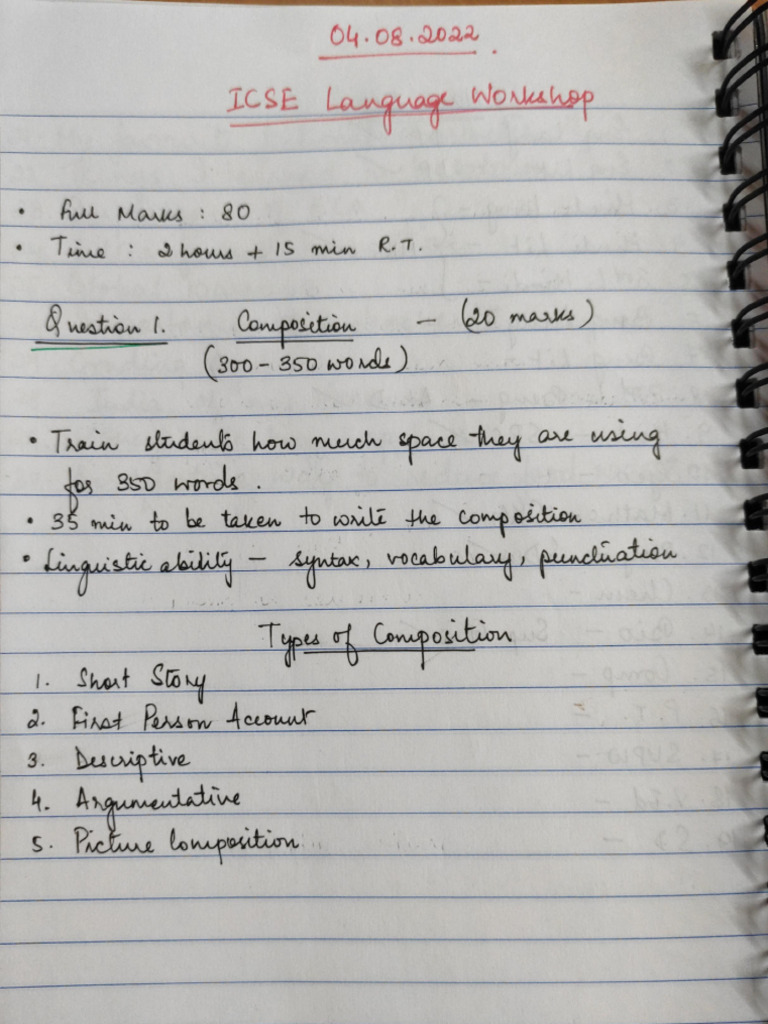 04.08.2022.
ICSE Language Workshop
• Full Marks : 80
• Time : 2 hours + 15 min R.T.
Question 1. Composition - (20 marks)
(300-350 words)
• Train students how much space they are using
for 350 words.
• 35 min to be taken to write the composition
• Linguistic ability - syntax, vocabulary, punctuation
Types of Composition
1. Short Story
2. First Person Account
3. Descriptive
4. Argumentative
5. Picture Composition